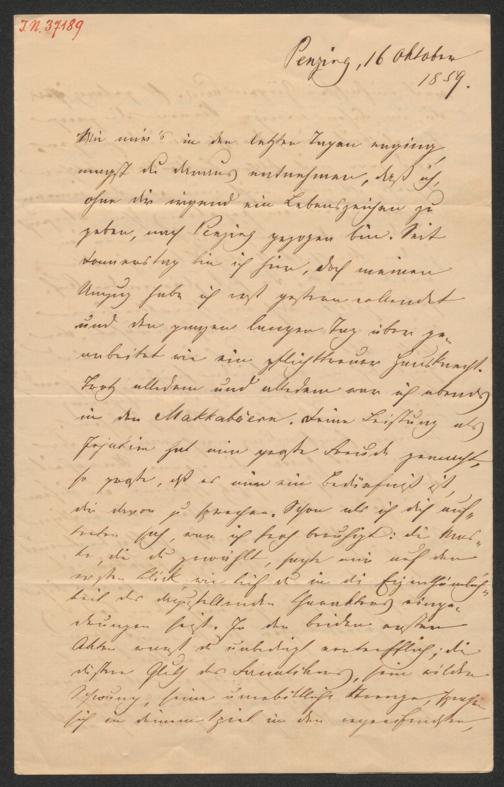 I.N. 37189
Penzing, 16 Oktober
1859.
Wie mir's in den letzten Tagen erging,
magst du daraus entnehmen, daß ich,
ohne dir irgend ein Lebenszeichen zu
geben, nach Penzing gezogen bin. Seit
Donnerstag bin ich hier, doch meinen
Umzug habe ich erst gestern vollendet
und den ganzen langen Tag über ge-
arbeitet wie ein pflichttreuer Hausknecht.
Trotz alledem und alledem war ich abends
in den Makkabäern. Deine Leistung als
Jojakim hat mir große Freude gemacht,
so große, daß es mir ein Bedürfniß ist,
dir davon zu sprechen. Schon als ich dich auf-
treten sah, war ich hoch beruhigt: die Mas-
ke, die du gewählt, sagte mir auf den
ersten Blick wie tief du in die Eigenthümlich-
keit des darzustellenden Charakters einge-
drungen seist. In den beiden ersten
Akten warst du unbedingt vortrefflich; die
düstere Glut des Fanatikers, sein wilder
Schwung, seine unerbittliche Strenge, sprach
sich in deinem Spiel in den ergreifendsten,